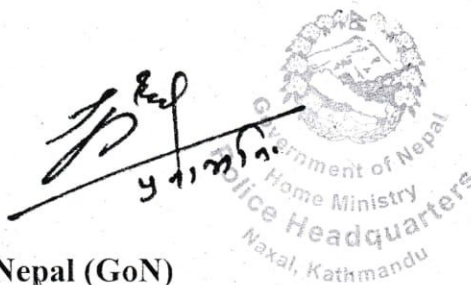 प्र ना उ नि.
Government of Nepal
Home Ministry
Police Headquarters
Naxal, Kathmandu
Nepal (GoN)